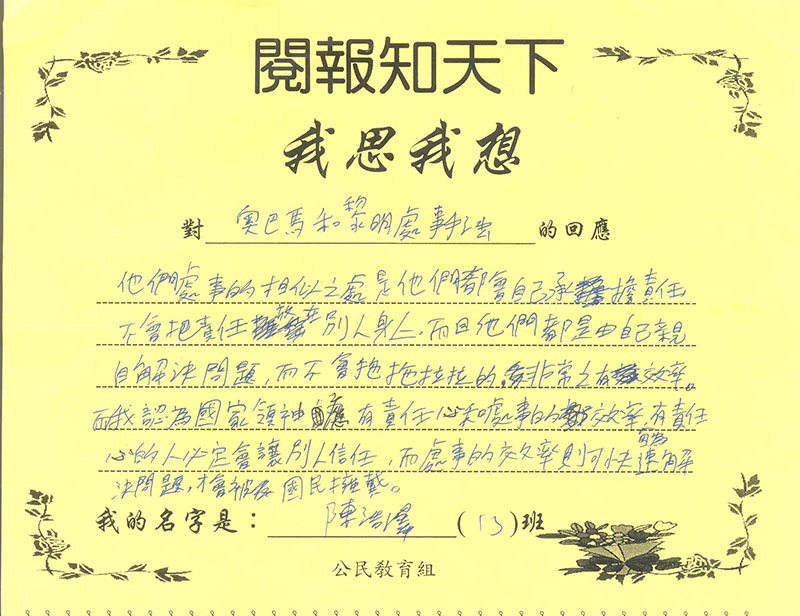 閱報知天下
我思我想
對 奧巴馬和黎明處事手法 的回應
他們處事的相似之處是他們都會自己承擔責任
不會把責任放在別人身上,而且他們都是由自己親
自解決問題,而不會拖拖拉拉的,非常之有效率。
而我認為國家領袖應有責任心和處事的效率,有責任
心的人必定會讓別人信任,而處事的效率則可快速解
決問題,才會被 國民擁戴。
我的名字是: 陳浩 ( ) 班
公民教育組